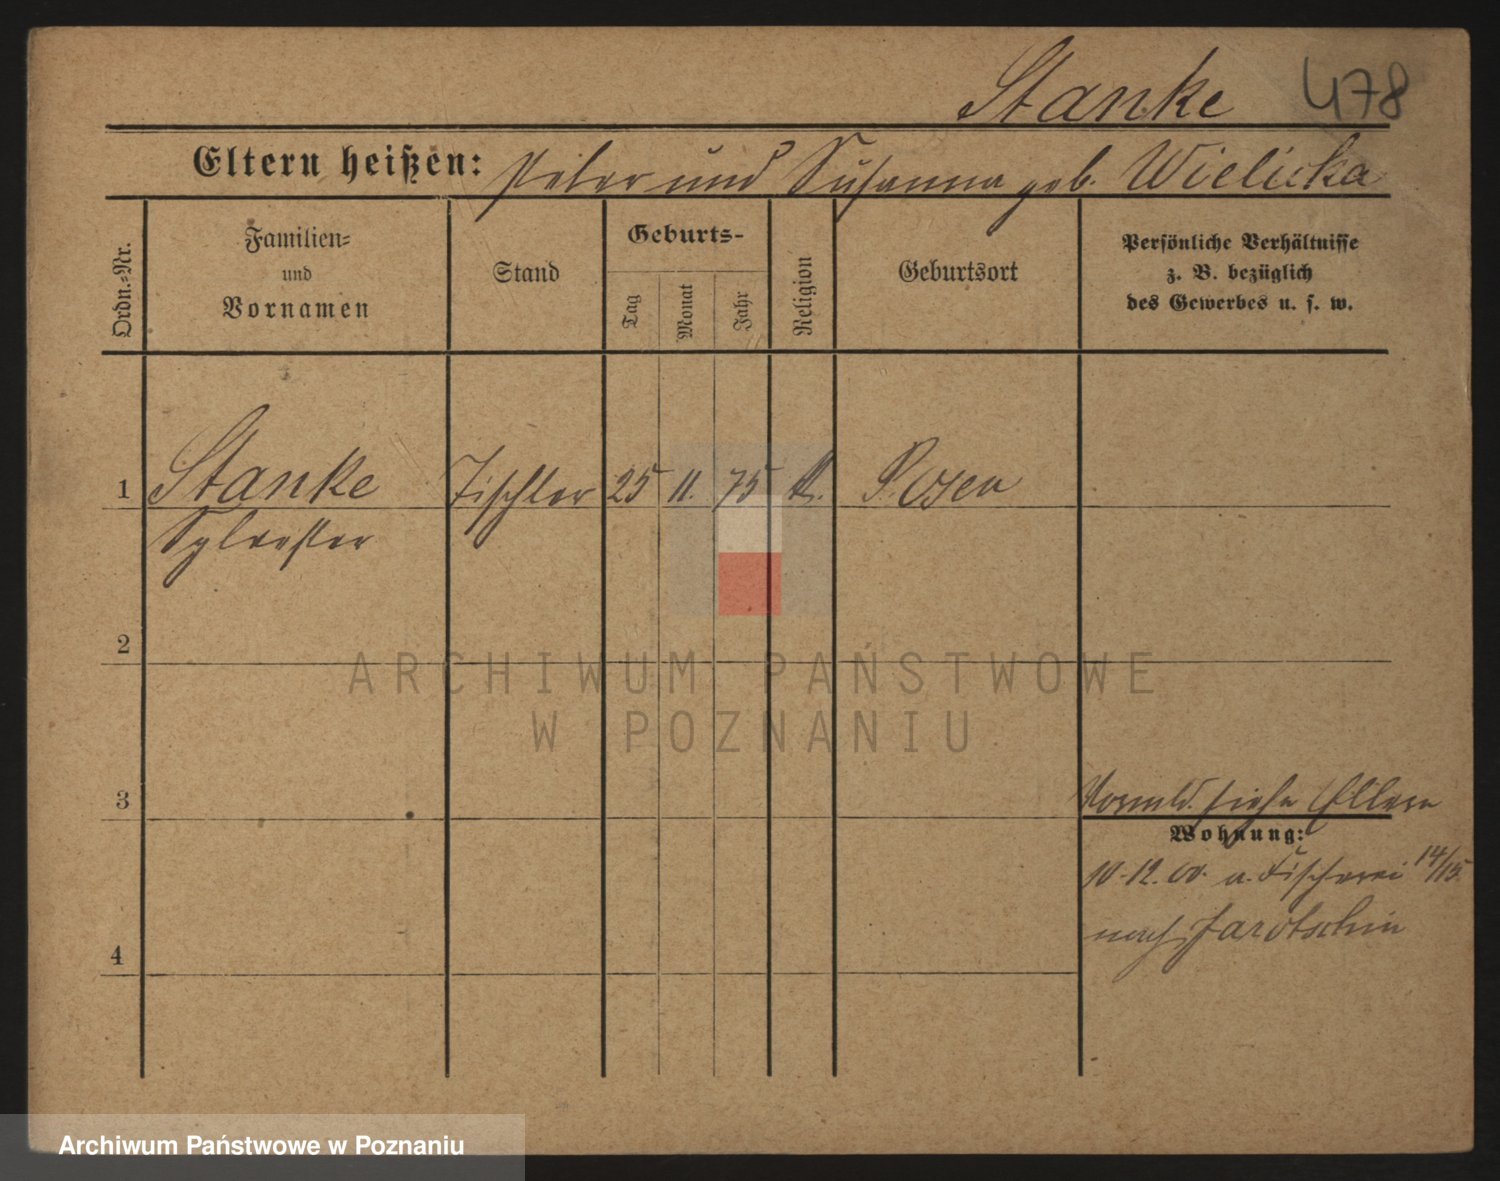 Stanke 478
Eltern heißen: Peter und Susanna geb. Wielicka
Ordn.-Nr.
Familien-
und
Vornamen
Stand
Geburts-
Tag
Monat
Jahr
Religion
Geburtsort
Persönliche Verhältnisse
z. B. bezüglich
des Gewerbes u. s. w.
1 Stanke Tischler 25 11. 75 k. Posen
Sylvester
2
3
siehe Eltern
Wohnung:
10.12.00. a. Fischerei 14/15.
nach Jarotschin
4
ARCHIWUM PAŃSTWOWE
W POZNANIU
Archiwum Państwowe w Poznaniu